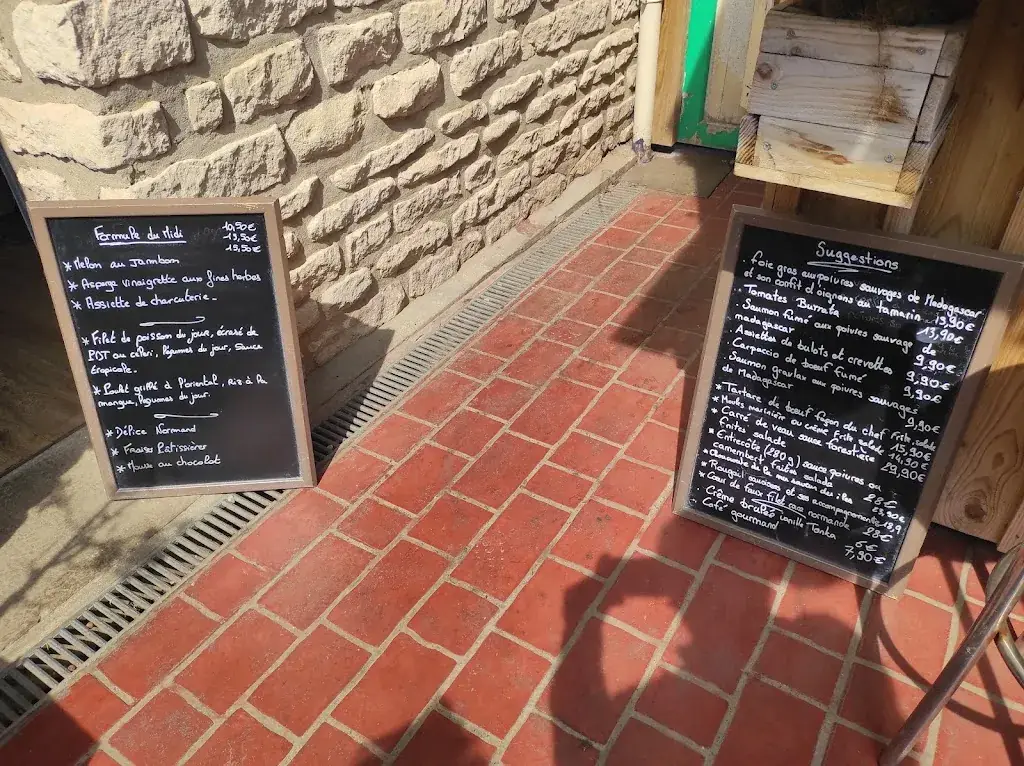 Formule du Midi
10,50€
15,50€
19,50€
* Melon au Jambom
* Asperge vinaigrette aux fines herbes
* Assiette de charcuterie.
* Filet de poisson du jour, écrasé de
PDT au céleri, légumes du jour, sauce
tropicale.
* Poulet grillé à l'oriental, riz à la
mangue, légumes du jour.
* Délice Normand
* Fraisier Pâtissière
* Mousse au chocolat
Suggestions
. Foie gras aux poivres sauvages de Madagascar
et son confit d'oignons au Tamarin. 13,90€
. Tomates Burrata 13,90€
. Saumon fumé aux poivres sauvage de
madagascar 9,90€
. Assiettes de bulots et crevettes 9,90€
. Carpaccio de bœuf fumé 9,90€
. Saumon gravlax aux poivres sauvages
de Madagascar 9,90€
* Tartare de bœuf façon du chef Frite, salade 15,90€
* Moules marinière ou crème frite salade 14,90€
* Carré de veau, sauce forestière
frites salade 29,90€
* Entrecôtes (280g) sauce poivres ou
camembert frites salade 28€
* Rougail saucisses et ses accompagnements
* Cœur de faux filet race normande 28€
. Crème brulée vanille Tonka 6€
. Café gourmand 7,90€